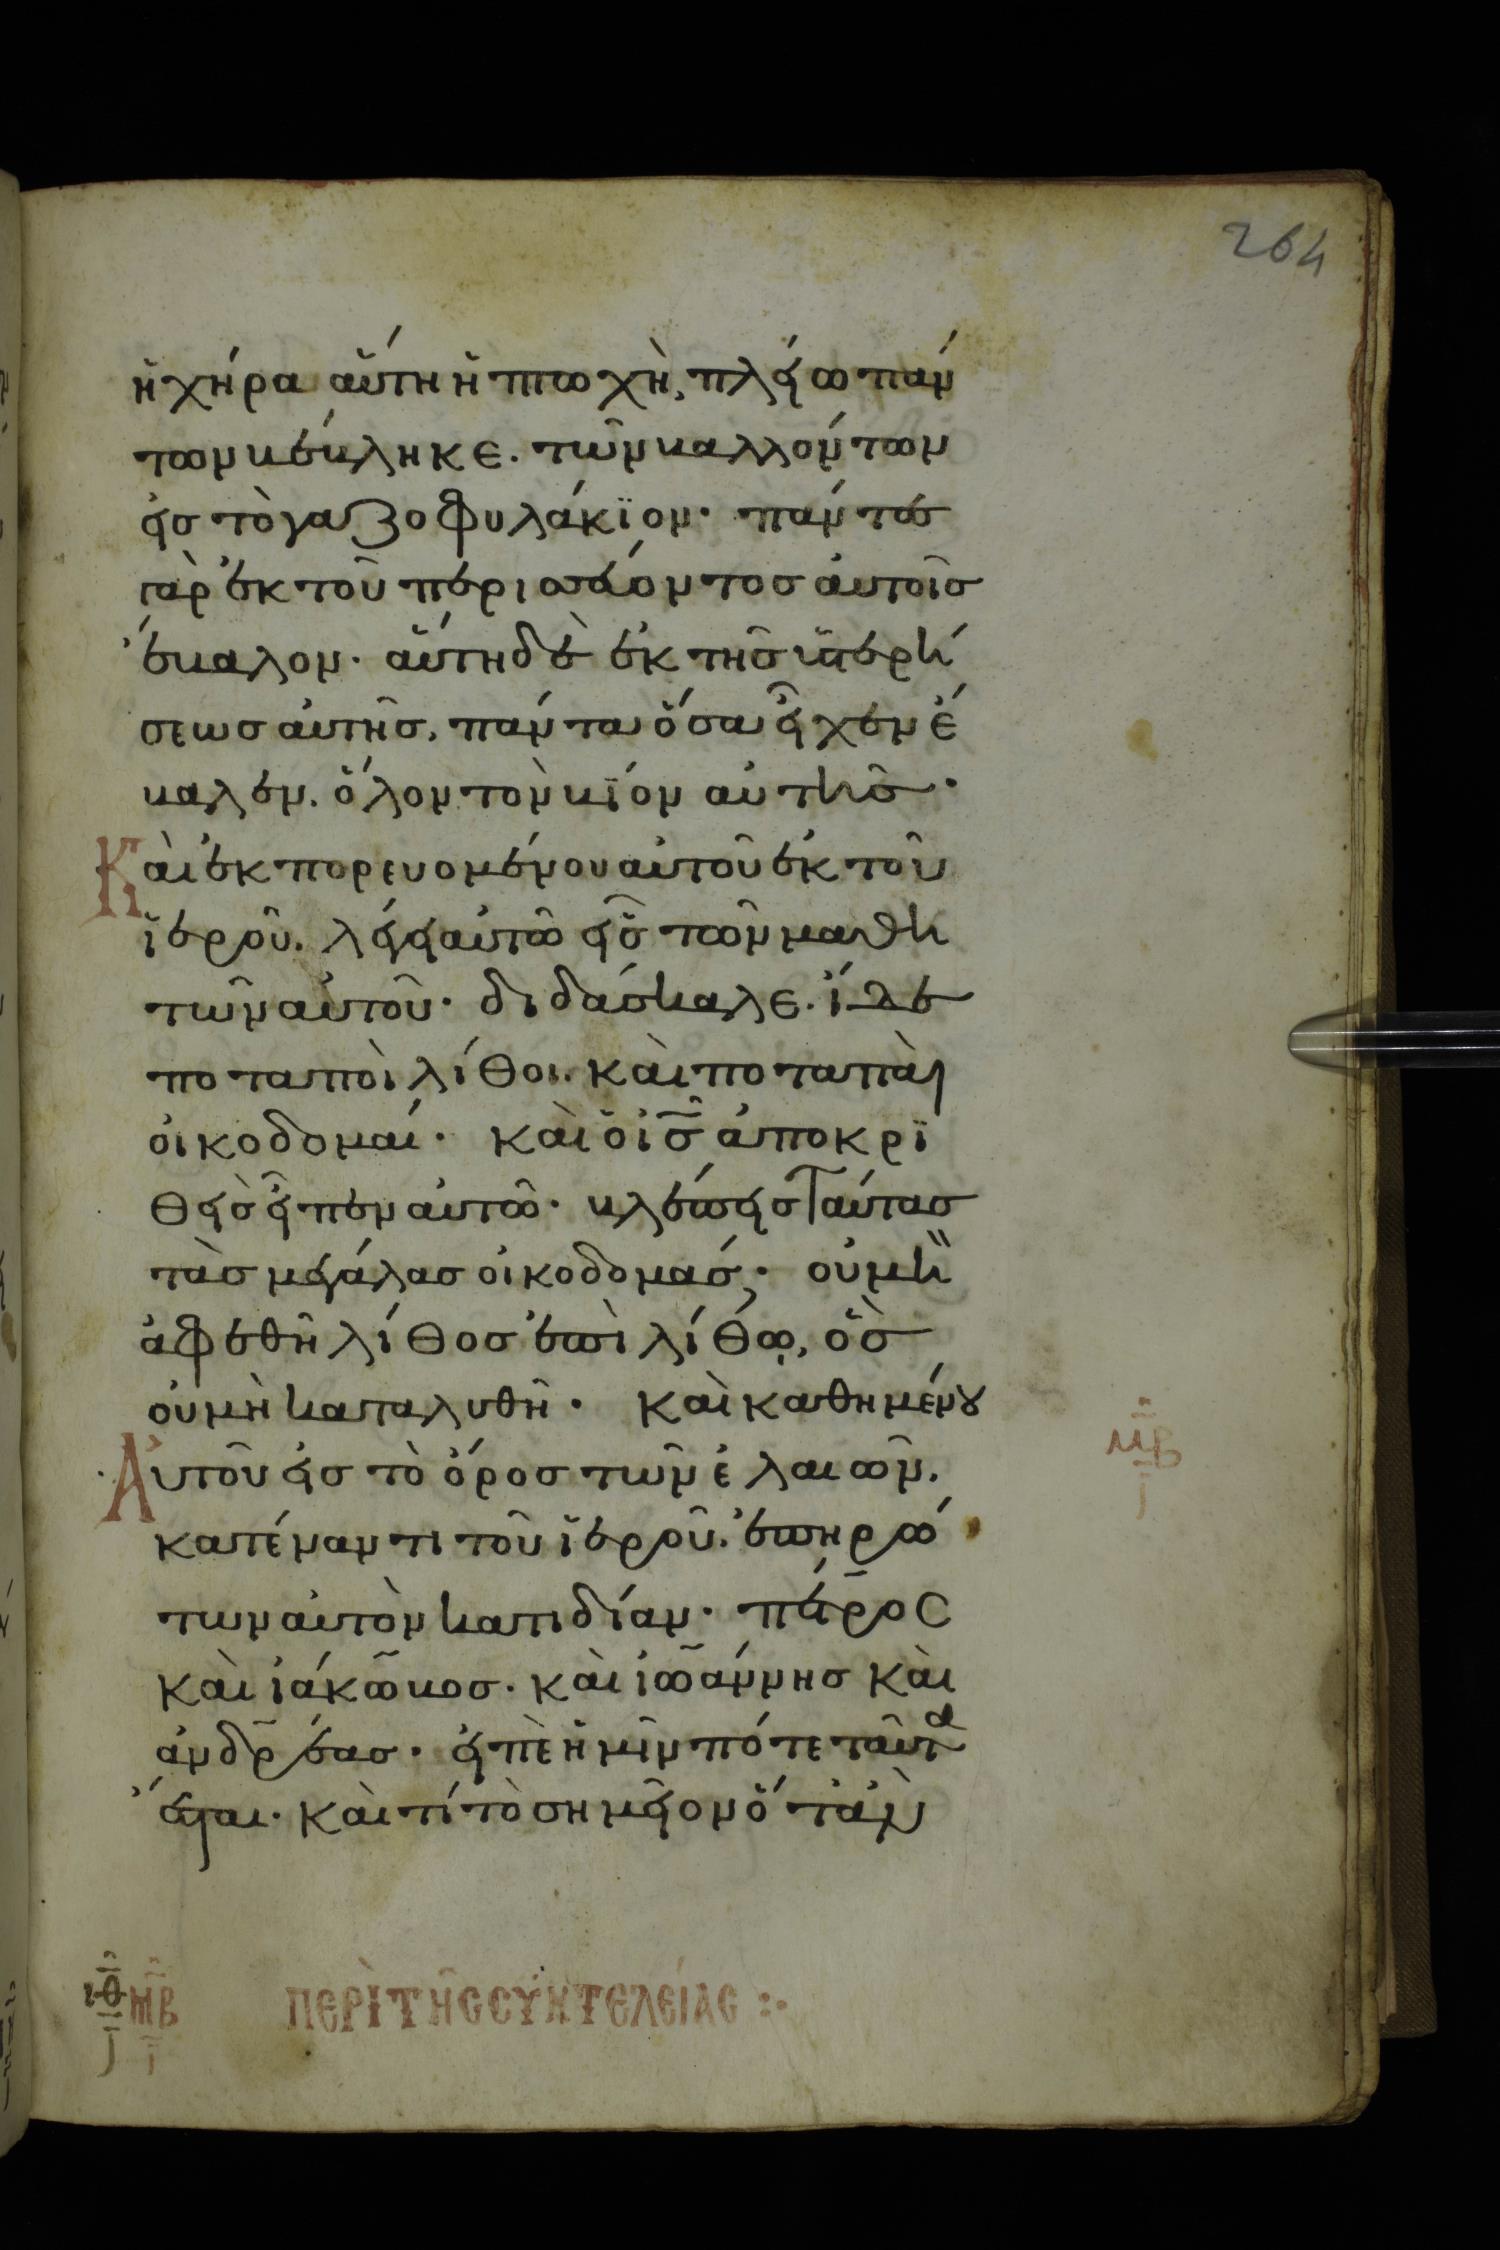 264
ἡ χήρα αὕτη ἡ πτωχὴ, πλείω πάν
των βέβληκε. τῶν βαλλόντων
εἰς τὸ γαζοφυλάκϊον· πάντες
γὰρ ἐκ τοῦ περισσέοντος αὐτοῖς
ἔβαλον· αὕτη δὲ ἐκ τῆς ὑστερή
σεως αὐτῆς, πάντα ὅσα εἶχεν ἔ
βαλεν. ὅλον τὸν βίον αὐτῆς·
Καὶ ἐκπορευομένου αὐτοῦ ἐκ τοῦ
ἱεροῦ. λέγει αὐτῶ εἷς τῶν μαθη
τῶν αὐτοῦ· διδάσκαλε. ἴδε
ποταποὶ λίθοι. καὶ ποταπαὶ
οἰκοδομαί· καὶ ὁ ις̅ ἀποκρϊ
θεὶς εἶπεν αὐτῶ· βλέπεις ταύτας
τὰς μεγάλας οἰκοδομάς; οὐ μὴ
ἀφεθῆ λίθος ἐπὶ λίθω, ὃς
οὐ μὴ καταλυθῆ· καὶ καθημένου
Αὐτοῦ εἰς τὸ ὄρος τῶν ἐλαιῶν.
μβ
ι
κατέναντι τοῦ ἱεροῦ. ἐπηρώ
των αὐτὸν κατιδίαν· πέτρος
καὶ ἰάκωβος· καὶ ἰωάννης καὶ
ἀνδρέας· εἰπὲ ἡμῖν πότε ταῦτα
ἔσται· καὶ τί τὸ σημεῖον ὅταν
ιθ μβ ΠΕΡῚ ΤΗ͂Ϲ ϹΥΝΤΕΛΕΊΑϹ :·
ι ι